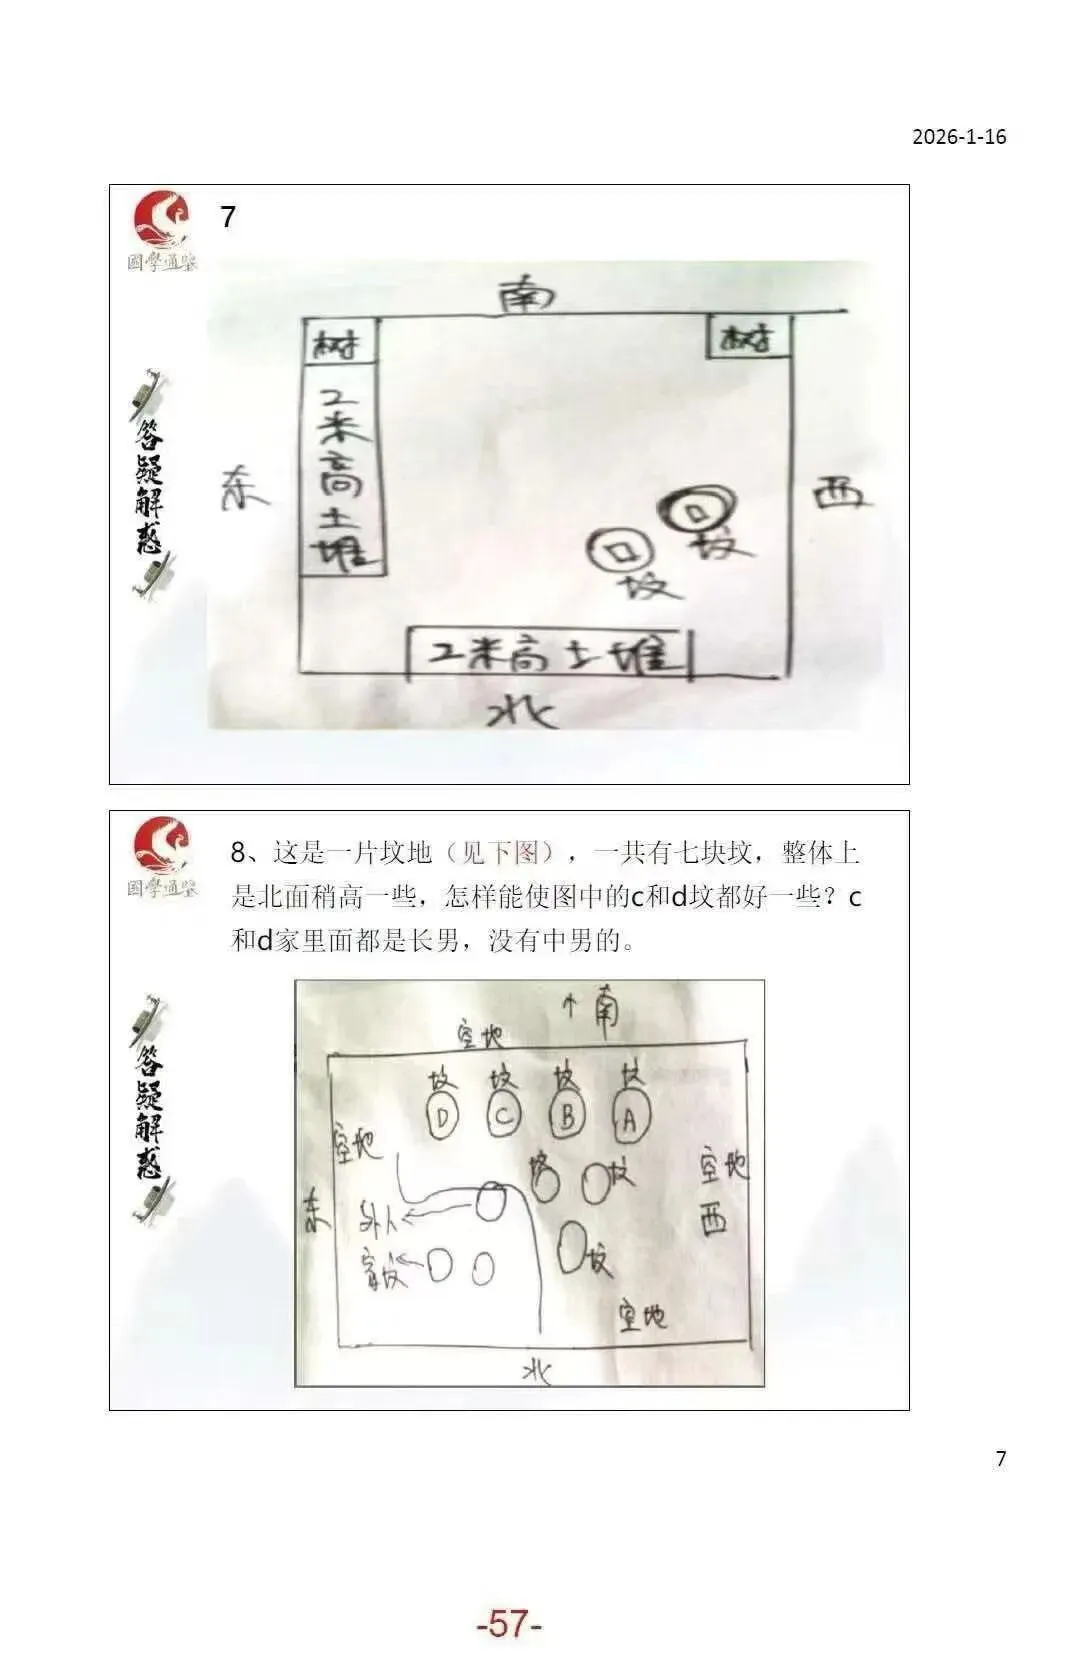 2026-1-16
7
國學通鑒
南
树
树
2米高土堆
东
西
坟
坟
2米高土堆
北
答疑解惑
8、这是一片坟地（见下图），一共有七块坟，整体上
是北面稍高一些，怎样能使图中的c和d坟都好一些？c
和d家里面都是长男，没有中男的。
國學通鑒
答疑解惑
↑南
空地
坟 坟 坟 坟
D C B A
空地
坟 坟
空地
东
外人
西
坟
空地
北
7
-57-